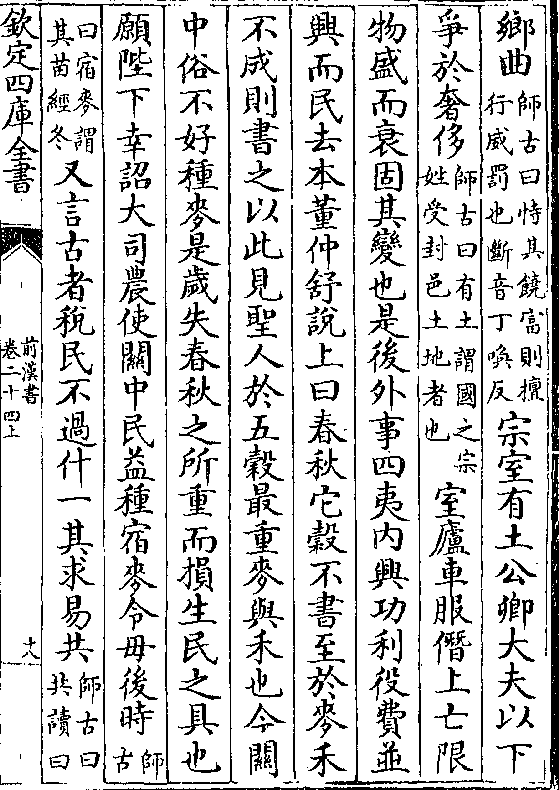 鄉曲師古曰恃其饒富則擅行威罰也斷音丁喚反宗室有土公卿大夫以下
爭於奢侈師古曰有土謂國之宗姓受封邑土地者也室廬車服僭上亡限
物盛而衰固其變也是後外事四夷内興功利役費並
興而民去本董仲舒說上曰春秋它穀不書至於麥禾
不成則書之以此見聖人於五穀最重麥與禾也今關
中俗不好種麥是歲失春秋之所重而損生民之具也
願陛下幸詔大司農使關中民益種宿麥令毋後時師古
曰宿麥謂其苗經冬又言古者稅民不過什一其求易共師古曰共讀曰
欽定四庫全書
前漢書
卷二十四上
十八